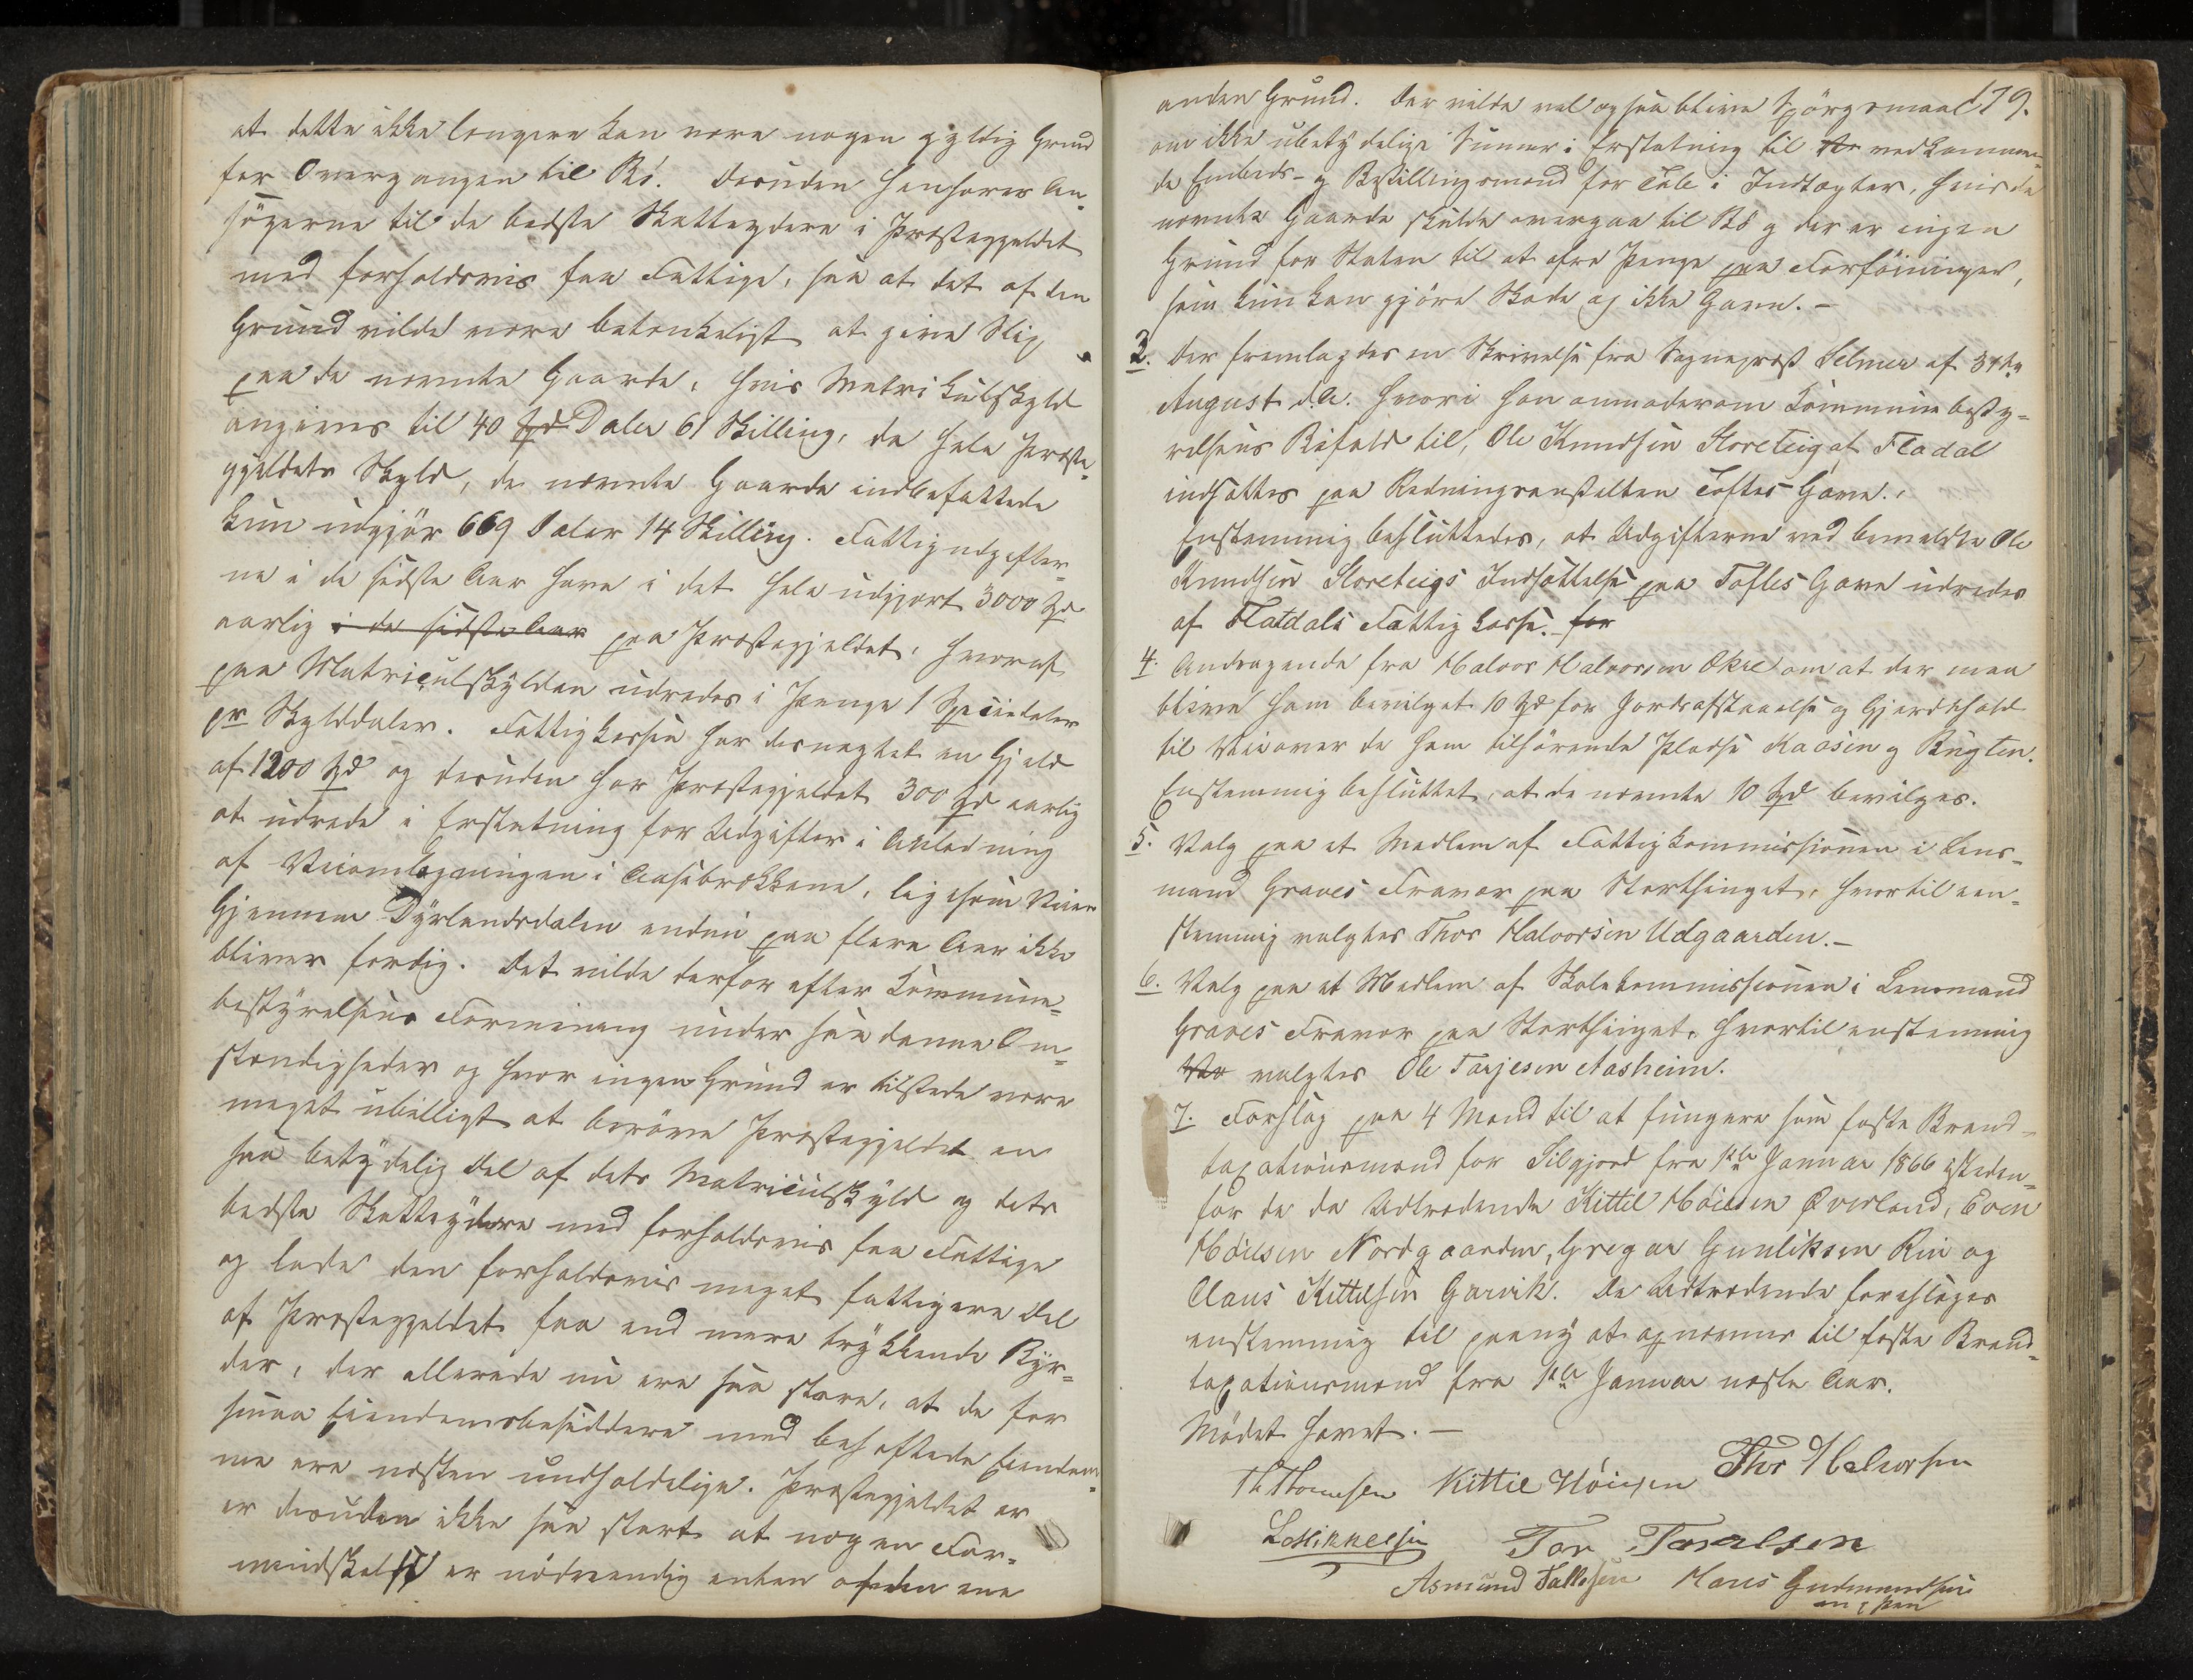 at dette ikke længere kan være nogen gyldig Grund
for Overgangen til Bø. Desuden henhører An-
søgerne til de bedste Skatteydere i Præstegjeldet
med forholdsvis faa Fattige, saa at det af den
Grund vilde være betænkeligt at give Slip
paa de nævnte Gaarde, hvis Matrikulskyld
angives til 40 Daler 61 Skilling, da hele Præste-
gjeldets Skyld, de nævnte Gaarde indbefattede
kun udgjør 669 Daler 14 Skilling. Fattigudgifter-
ne i de sidste Aar have i det hele udgjort 3000 Spd
aarlig i de sidste Aar paa Præstegjeldet, hvoraf
paa Matriculskylden udredes i Penge 1 Speciedaler
pr Skylddaler. Fattigkassen har desuagtet en Gjeld
af 1200 Spd og desuden har Præstegjeldet 300 Spd aarlig
at udrede i Erstatning for Udgifter i Anledning
af Veiomlægningen i Aasebrækkene, ligesom Veien
Gjennem Dyrlandsdalen endnu paa flere Aar ikke
bliver færdig. Det vilde derfor efter Kommune-
bestyrelsens Formening under saadanne Om-
stændigheder og hvor ingen Grund er tilstede være
meget ubilligt at berøve Præstegjeldet en
saa betydelig Del af dets Matriculskyld og dets
bedste Skatteydere med forholdsvis faa Fattige
og lade den forholdsvis meget fattigere Del
af Præstegjeldet faa end mere trykkende Byr-
der, der allerede nu ere saa store, at de for
smaa Eiendomsbesiddere med behæftede Eiendom-
me ere næsten uudholdelige. Præstegjeldet er
er desuden ikke saa stort at nogen For-
mindskelse er nødvendig enten af den ene
179.
anden Grund. Der vilde vel ogsaa blive Spørgsmaal
om ikke ubetydelige Summer i Erstatning til vedkommen-
de Embeds- og Bestillingsmænd for Tab i Indtægter, hvis de
nævnte Gaarde skulde overgaa til Bø og der er ingen
Grund for Staten til at ofre Penge paa Forføininger,
som kun kan gjøre Skade og ikke Gavn. –
3. Der fremlagdes en Skrivelse fra Sognepræst Selmer af 31te
August d.A. hvori han anmoder om Kommunebesty-
relsens Bifald til, Ole Knudsen Storeteig af Fladal
indsættes paa Redningsanstalten Toftes Gave.
Enstemmig besluttedes, at Udgifterne ved bemeldte Ole
Knudsen Storeteigs Indsættelse paa Toftes Gave udredes
af Flatdals Fattigkasse. for
4. Andragende fra Halvor Halvorsen Økre om at der maa
blive ham bevilget 10 Spd for Jordafstaaelse og Gjerdehold
til Vei over de ham tilhørende Pladse Kaasen og Bugten.
Enstemmig besluttet, at de nævnte 10 Spd bevilges.
5. Valg paa et Medlem af Fattigkommissionen i Lens-
mand Graves Fravær paa Storthinget, hvortil een-
stemmig valgtes Thor Halvorsen Udgaarden. –
6. Valg paa et Medlem af Skolekommissionen i Lensmand
Graves Fravær paa Storthinget, hvortil enstemmig
valgtes Ole Tarjesen Aasheim.
7. Forslag paa 4 Mænd til at fungere som faste Brand-
taxationsmænd for Silgjord fra 1ste Januar 1866 isteden-
for de da Udtrædende Kittil Høiesen Øverland, Even
Høiesen Nordgaarden, Gregar Gunliksen Rui og
Claus Kittelsen Garvik. De Udtrædende foreslaaes
enstemmig til paany at opnævnes til faste Brand-
taxationsmænd fra 1ste Januar næste Aar.
Mødet hævet. –
Th Thomesen Kittil Høiesen Thor Halvorsen
L Mikkelsen Tor Toralsen
Asmund Tallefsen Hans Gudmundsen